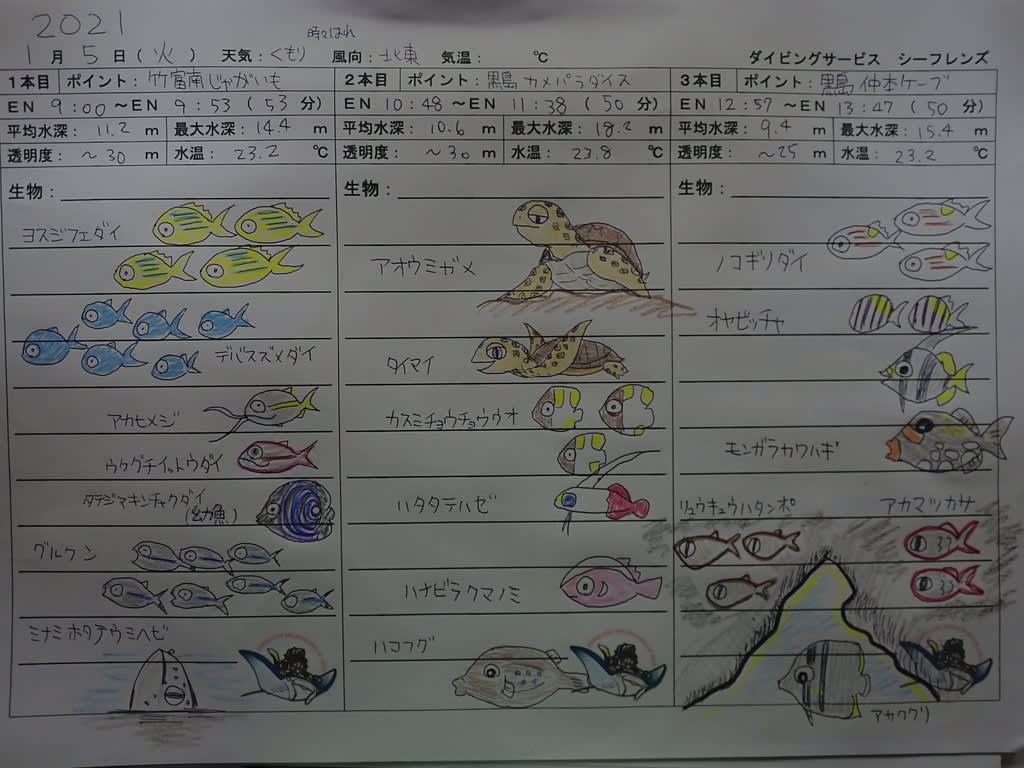 2021
1月5日(火) 天気:くもり 時々はれ 風向:北東 気温: ℃ ダイビングサービス シーフレンズ
1本目 ポイント:竹富南じゃがいも
EN 9:00 ~EN 9:53 (53分)
平均水深: 11.2 m 最大水深: 14.4 m
透明度: ~30 m 水温: 23.2 ℃
生物:
ヨスジフエダイ
デバスズメダイ
アカヒメジ
ウケグチイットウダイ
タテジマキンチャクダイ
(幼魚)
グルクン
ミナミホタテウミヘビ
2本目 ポイント:黒島 カメパラダイス
EN 10:48 ~EN 11:38 (50分)
平均水深: 10.6 m 最大水深: 18.2 m
透明度: ~30 m 水温: 23.8 ℃
生物:
アオウミガメ
タイマイ
カスミチョウチョウウオ
ハタタテハゼ
ハナビラクマノミ
ハコフグ
3本目 ポイント:黒島 仲本ケーブ
EN 12:57 ~EN 13:47 (50分)
平均水深: 9.4 m 最大水深: 15.4 m
透明度: ~25 m 水温: 23.2 ℃
生物:
ノコギリダイ
オヤビッチャ
モンガラカワハギ
リュウキュウハタンポ アカマツカサ
アカククリ